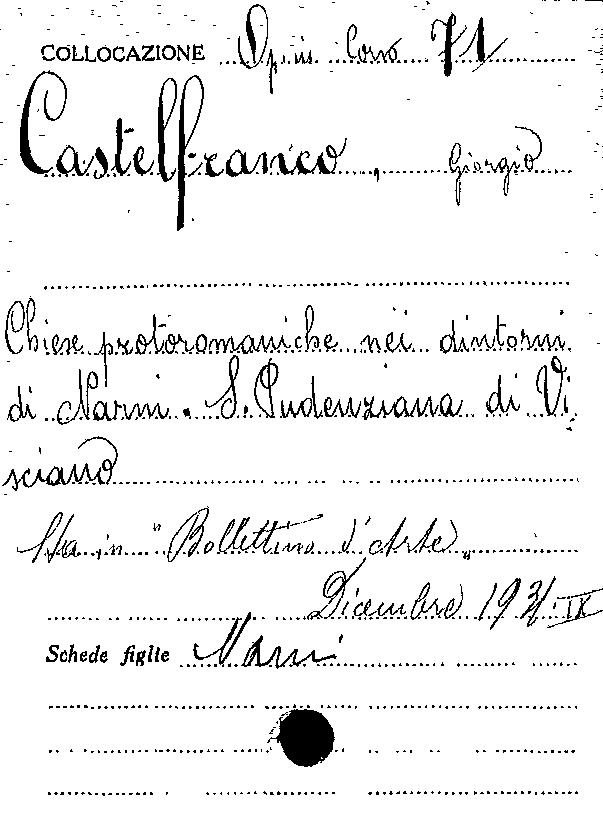 COLLOCAZIONE Op. in Corso 71
Castelfranco, Giorgio
Chiese protoromaniche nei dintorni
di Narni. S. Pudenziana di Vi
sciano
Sta in "Bollettino d'Arte"
Dicembre 1931. IX
Schede figlie Narni